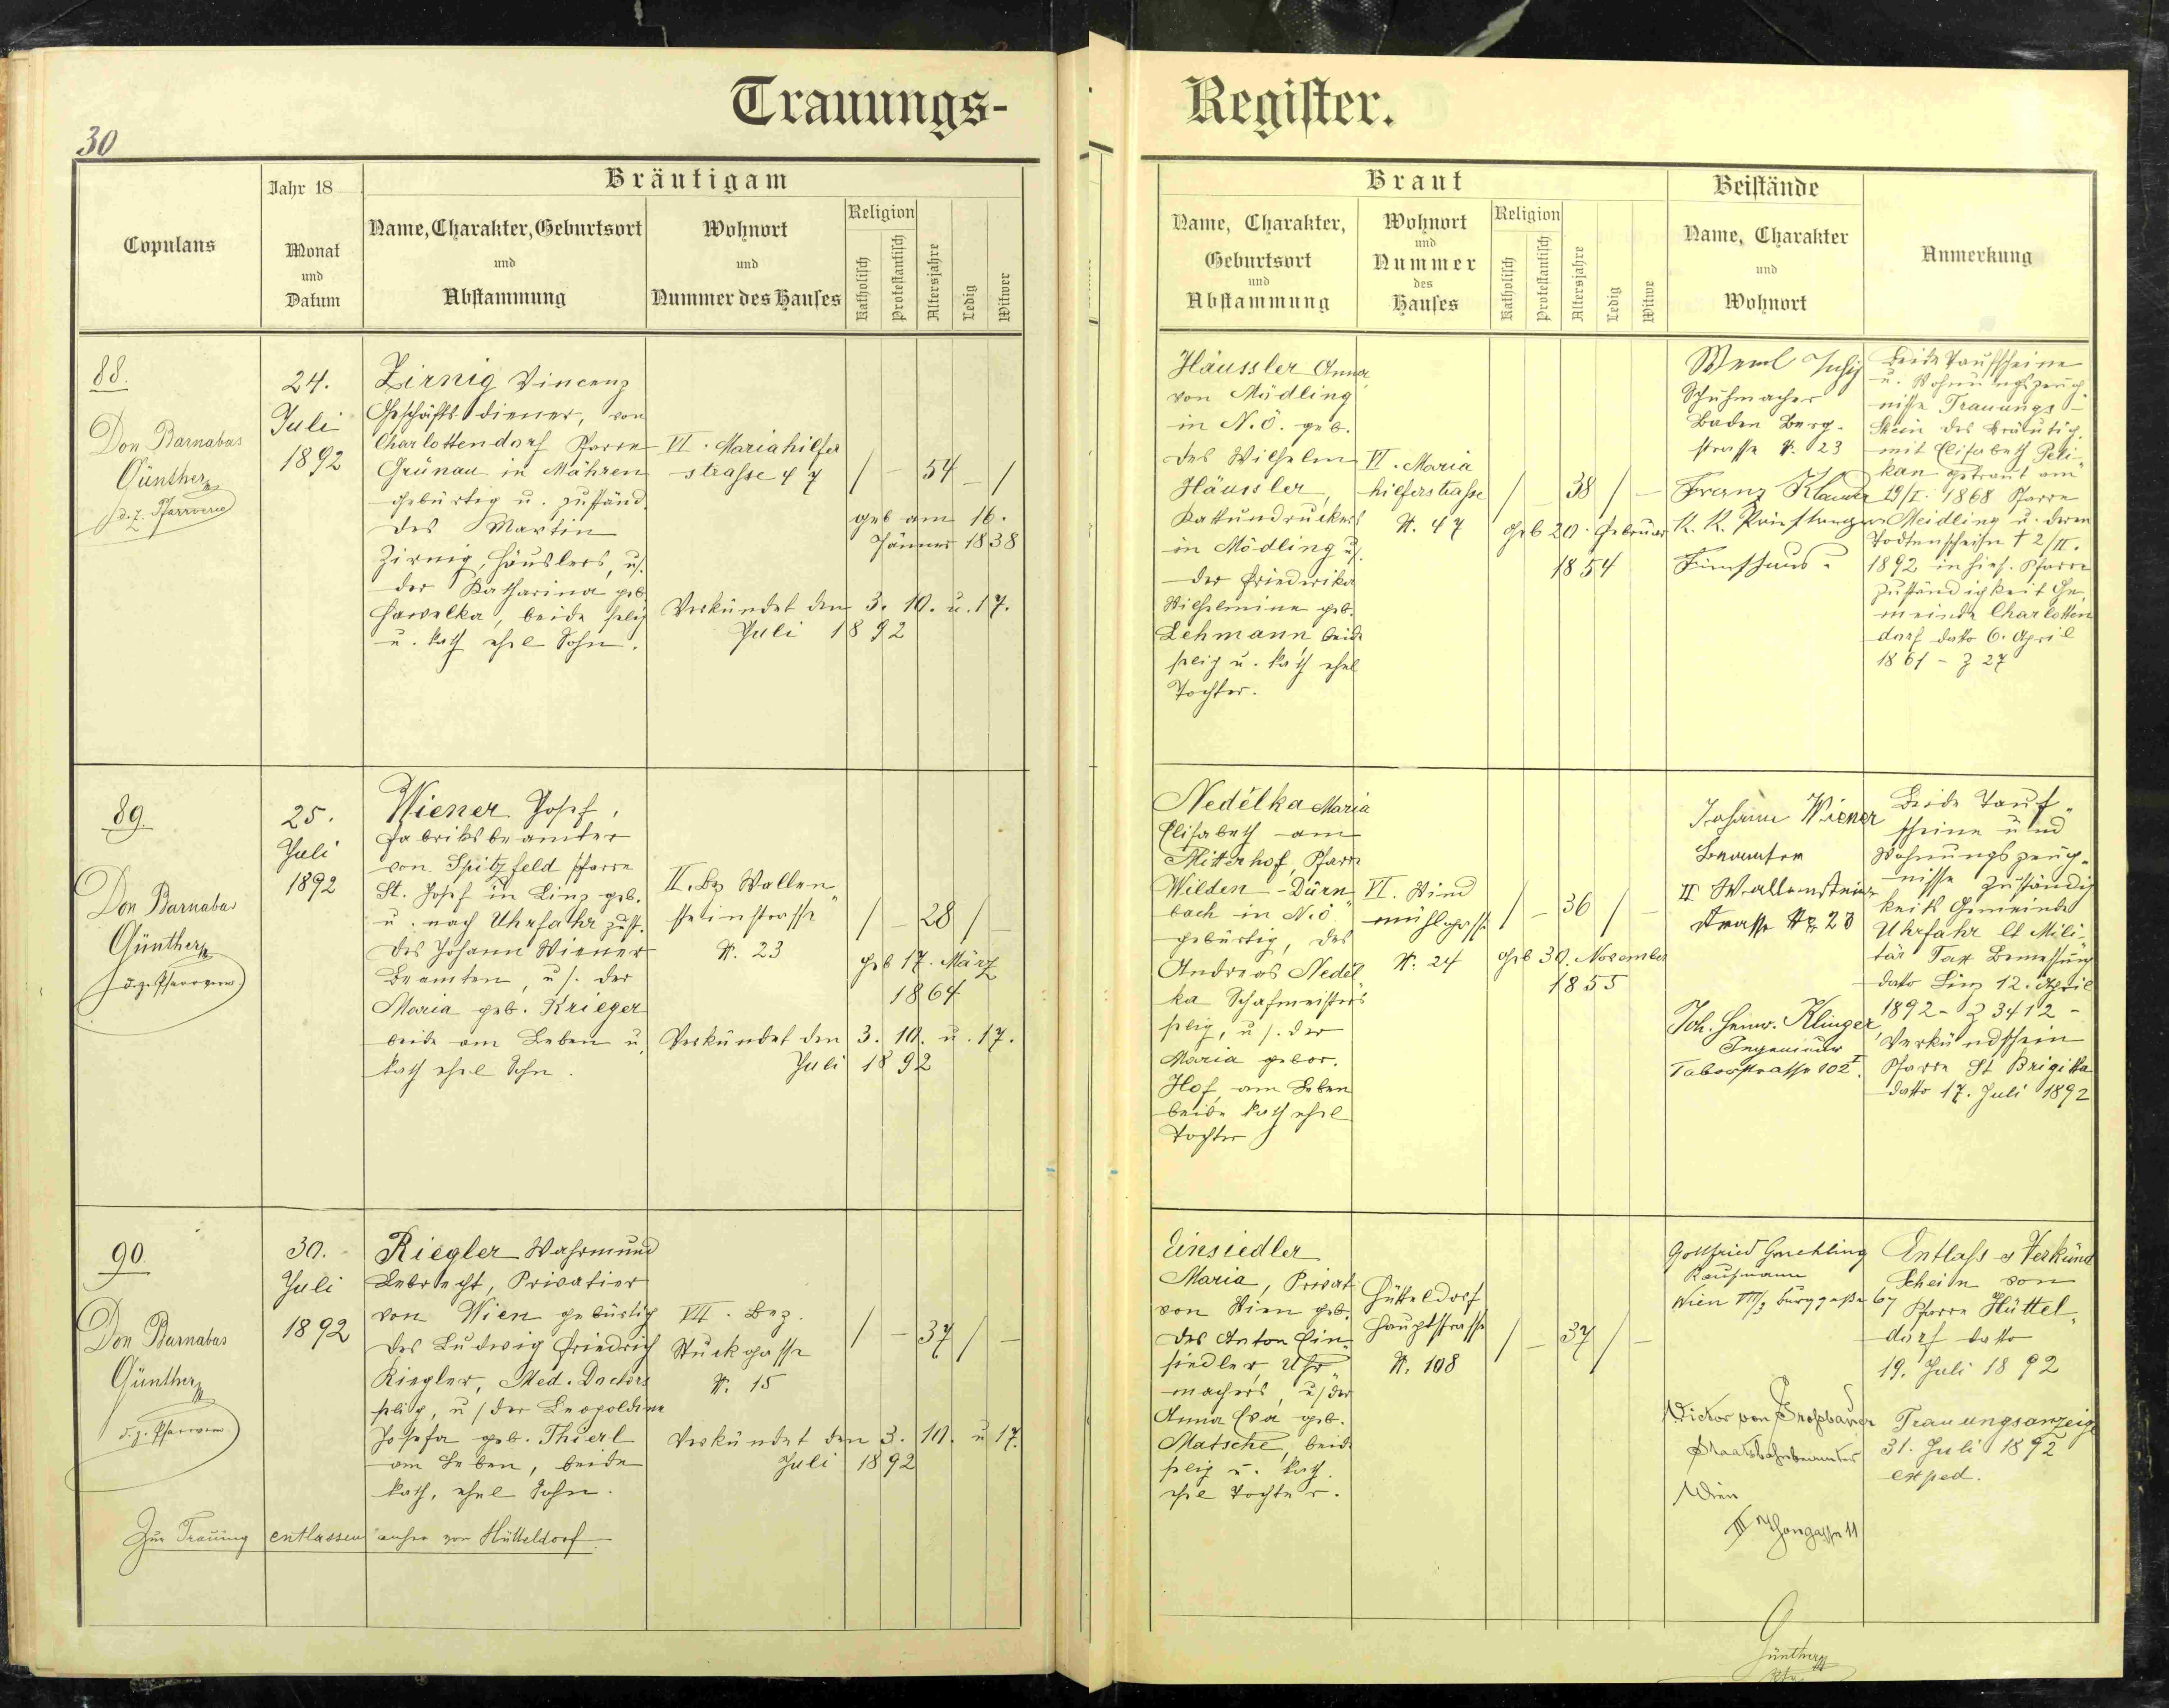 Trauungs-
Register.
30
Copulans
Jahr 18
Monat
und
Datum
Bräutigam
Name, Charakter, Geburtsort
und
Abstammung
Wohnort
und
Nummer des Hauses
Religion
Katholisch
Protestantisch
Altersjahre
Ledig
Witwer
Braut
Name, Charakter,
Geburtsort
und
Abstammung
Wohnort
und
Nummer
des
Hauses
Religion
Katholisch
Protestantisch
Altersjahre
Ledig
Witwe
Beistände
Name, Charakter
und
Wohnort
Anmerkung
88.
Don Barnabas
Günther
d. z. Pfarrverw
24.
Juli
1892
Zirnig Vincenz
Geschäftsdiener, von
Charlottendorf Pfarre
Grünau in Mähren
gebürtig u. zuständ.
des Martin
Zirnig, Häuslers, u.
der Katharina geb.
Hawelka, beide selig
u. kath ehel Sohn.
VI. Mariahilfer
strasse 47
/ – 54 – /
geb am 16.
Jänner 1838
Verkündet den 3. 10. u. 17.
Juli 1892
Häussler Anna
von Mödling
in N.Ö. geb.
des Wilhelm
Häussler,
Kattundruckers
in Mödling u.
der Friederika
Wilhelmine geb.
Lehmann, beide
selig u. kath ehel
Tochter.
VI. Maria
hilferstrasse
N. 47
/ – 38 / –
geb 20. Februar
1854
Schuhmacher
Baden Berg-
strasse N. 23
Franz
K. K.
Fünfhaus.
Beide Taufscheine
u. Wohnungszeug
nisse Trauungs-
Schein des Bräutig.
mit Elisabeth Peki-
kan getraut am
19/I. 1868 Pfarre
Meidling u. deren
Todtenschein † 2/II.
1892 in hies. Pfarre
Zuständigkeit Ge-
meinde Charlotten
dorf datto 6. April
1861 – Z 27
89.
Don Barnabas
Günther
d. z. Pfarrverw
25.
Juli
1892
Wiener Josef,
Fabriksbeamter
von Spitzfeld Pfarre
St. Josef in Linz geb.
u. nach Uhrfahr zust.
des Johann Wiener
Beamten, u. der
Maria geb. Krieger
beide am Leben u.
kath ehel Sohn.
II. Bez Wallen"
steinstrasse
N. 23
/ – 28 / –
geb 17. März
1864
Verkündet den 3. 10. u. 17.
Juli 1892
Nedělka Maria
Elisabeth am
Mitterhof, Pfarre
Wilden-Dürn"
bach in N.Ö.
gebürtig, des
Andreas Neděl
ka Schafmeisters
selig, u. der
Maria gebor.
Hof, am Leben
beide kath ehel
Tochter
VI. Wind
mühlgasse
N. 24
/ – 36 / –
geb 30. November
1855
Johann Wiener
Beamter
II Wallenstein
strasse Nr 23
Joh. Heinr. Klinger
Ingenieur
Taborstrasse 102
Beide Tauf"
scheine und
Wohnungszeug"
nisse zuständig
keit Gemeinde
Uhrfahr lt Mili-
tär Tax Bemessung
dato Linz 12. April
1892 – Z 3412 –
Verkündschein
Pfarre St Brigitta
datto 17. Juli 1892
90.
Don Barnabas
Günther
d. z. Pfarrverw.
30.
Juli
1892
Riegler Wahrmund
Lebrecht, Privatier
von Wien gebürtig
des Ludwig Friedrich
Riegler, Med. Doctors
selig, u. der Leopoldine
Josefa geb. Thierl
am Leben, beide
kath, ehel Sohn.
VII. Bez.
Stuckgasse
N. 15
/ – 37 / –
Verkündet den 3. 10. u 17.
Juli 1892
Zur Trauung entlassen anher von Hütteldorf.
Einsiedler
Maria, Privat
von Wien geb.
des Anton Ein"
siedler, Uhr"
machers, u. der
Anna Eva geb.
Matsche, beide
selig u. kath.
ehel Tochter.
Hütteldorf
Hauptstrasse
N. 108
/ – 37 / –
Gottfried
Kaufmann
Wien VII/3 Burggaße 67
Victor von Grossbauer
Staatsbahnbeamter
Wien
III 11
Entlaß & Verkünd
Schein von
Pfarre Hüttel"
dorf datto
19. Juli 1892
Trauungsanzeige
31. Juli 1892
exped.
Günther